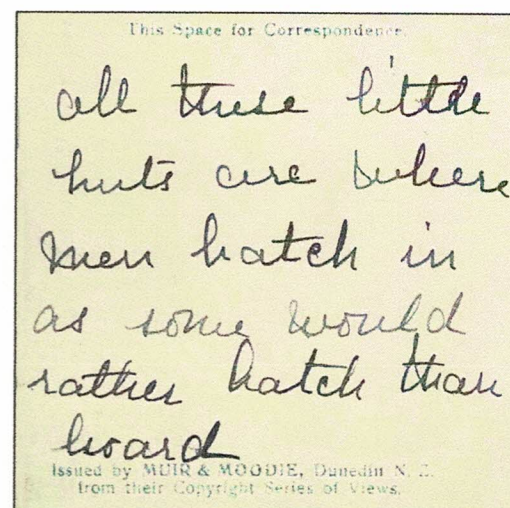 This Space for Correspondence.
all these little
huts are where
men batch in
as some would
rather batch than
board
Issued by MUIR & MOODIE, Dunedin N. Z.
from their Copyright Series of Views.